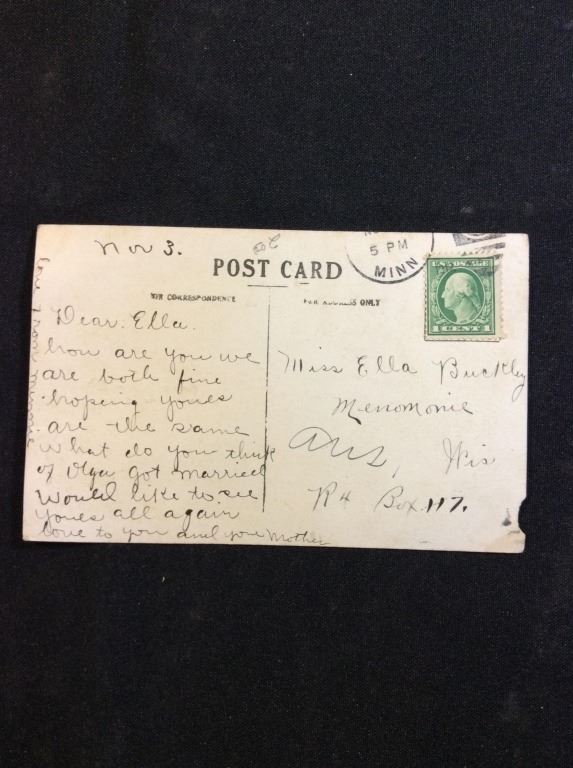 Nov 3.
POST CARD
5 PM
MINN
U.S. POSTAGE
1 CENT 1
FOR CORRESPONDENCE
FOR ADDRESS ONLY
Dear. Ella.
how are you we
are both fine
hopeing youes
are the same
what do you think
of Olga got married
Would like to see
youes all again
love to you and youe Mother
Miss Ella Buckley
Menomonie
Ans, Wis
R4 Box. 117.